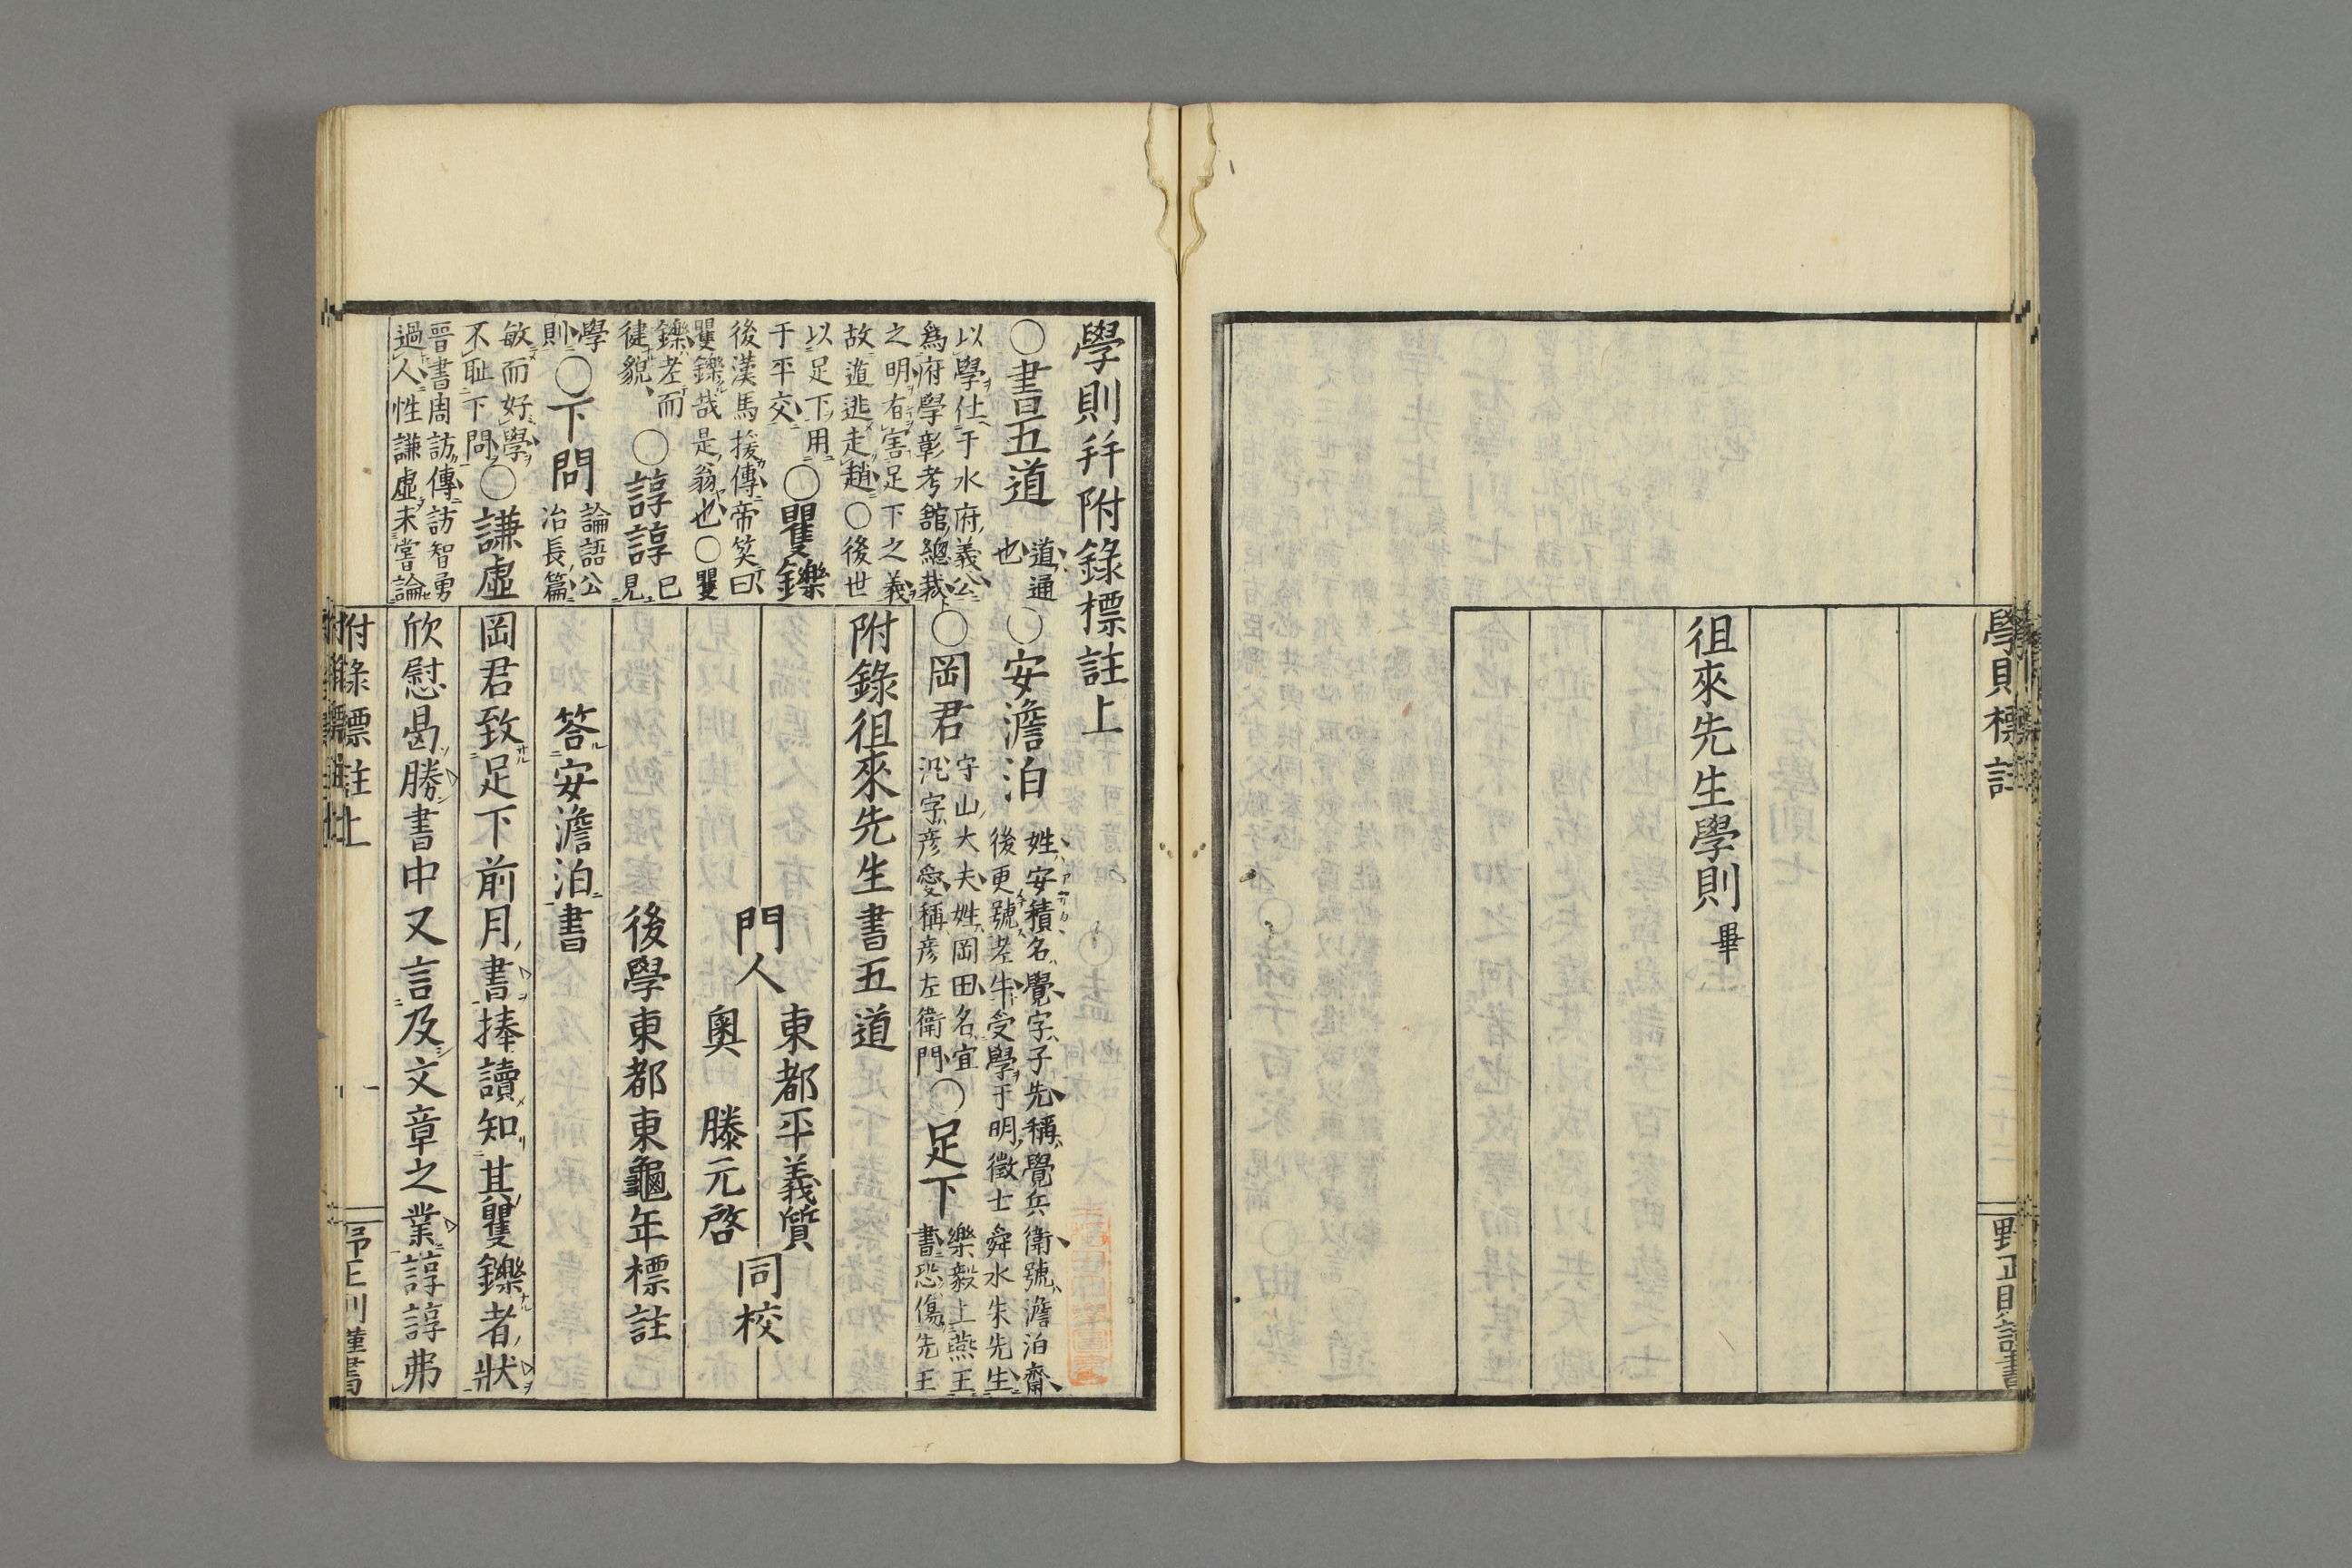 學則標註
野正則謹書
徂來先生學則畢
學則幷附錄標註上
○書五道
道通
也
○安澹泊
姓ハ安積名ハ覺字ハ子先稱ハ覺兵衛號ハ澹泊齋
後更號老牛受學于明徵士舜水朱先生
以學仕于水府義公
爲府學彰考館總裁
○岡君
守山大夫姓岡田名宜
汎字彦愛稱彦左衛門
○足下
樂毅上燕王
書恐傷先王
之明有害足下之義
故遁逃走趙○後世
以足下用
于平交
○矍鑠
後漢馬援傳帝笑曰
矍鑠哉是翁也○矍
鑠老而
健貌
○諄諄
已
見
學
則
○下問
論語公
冶長篇
敏而好學
不恥下問
○謙虛
晉書周訪傳訪智勇
過人性謙虛未嘗論
附錄徂來先生書五道
門人
東都平義質
奧滕元啓
同校
後學東都東龜年標註
答安澹泊書
岡君致足下前月書捧讀知其矍鑠者狀
欣慰曷勝書中又言及文章之業諄諄弗
附錄標註上
一